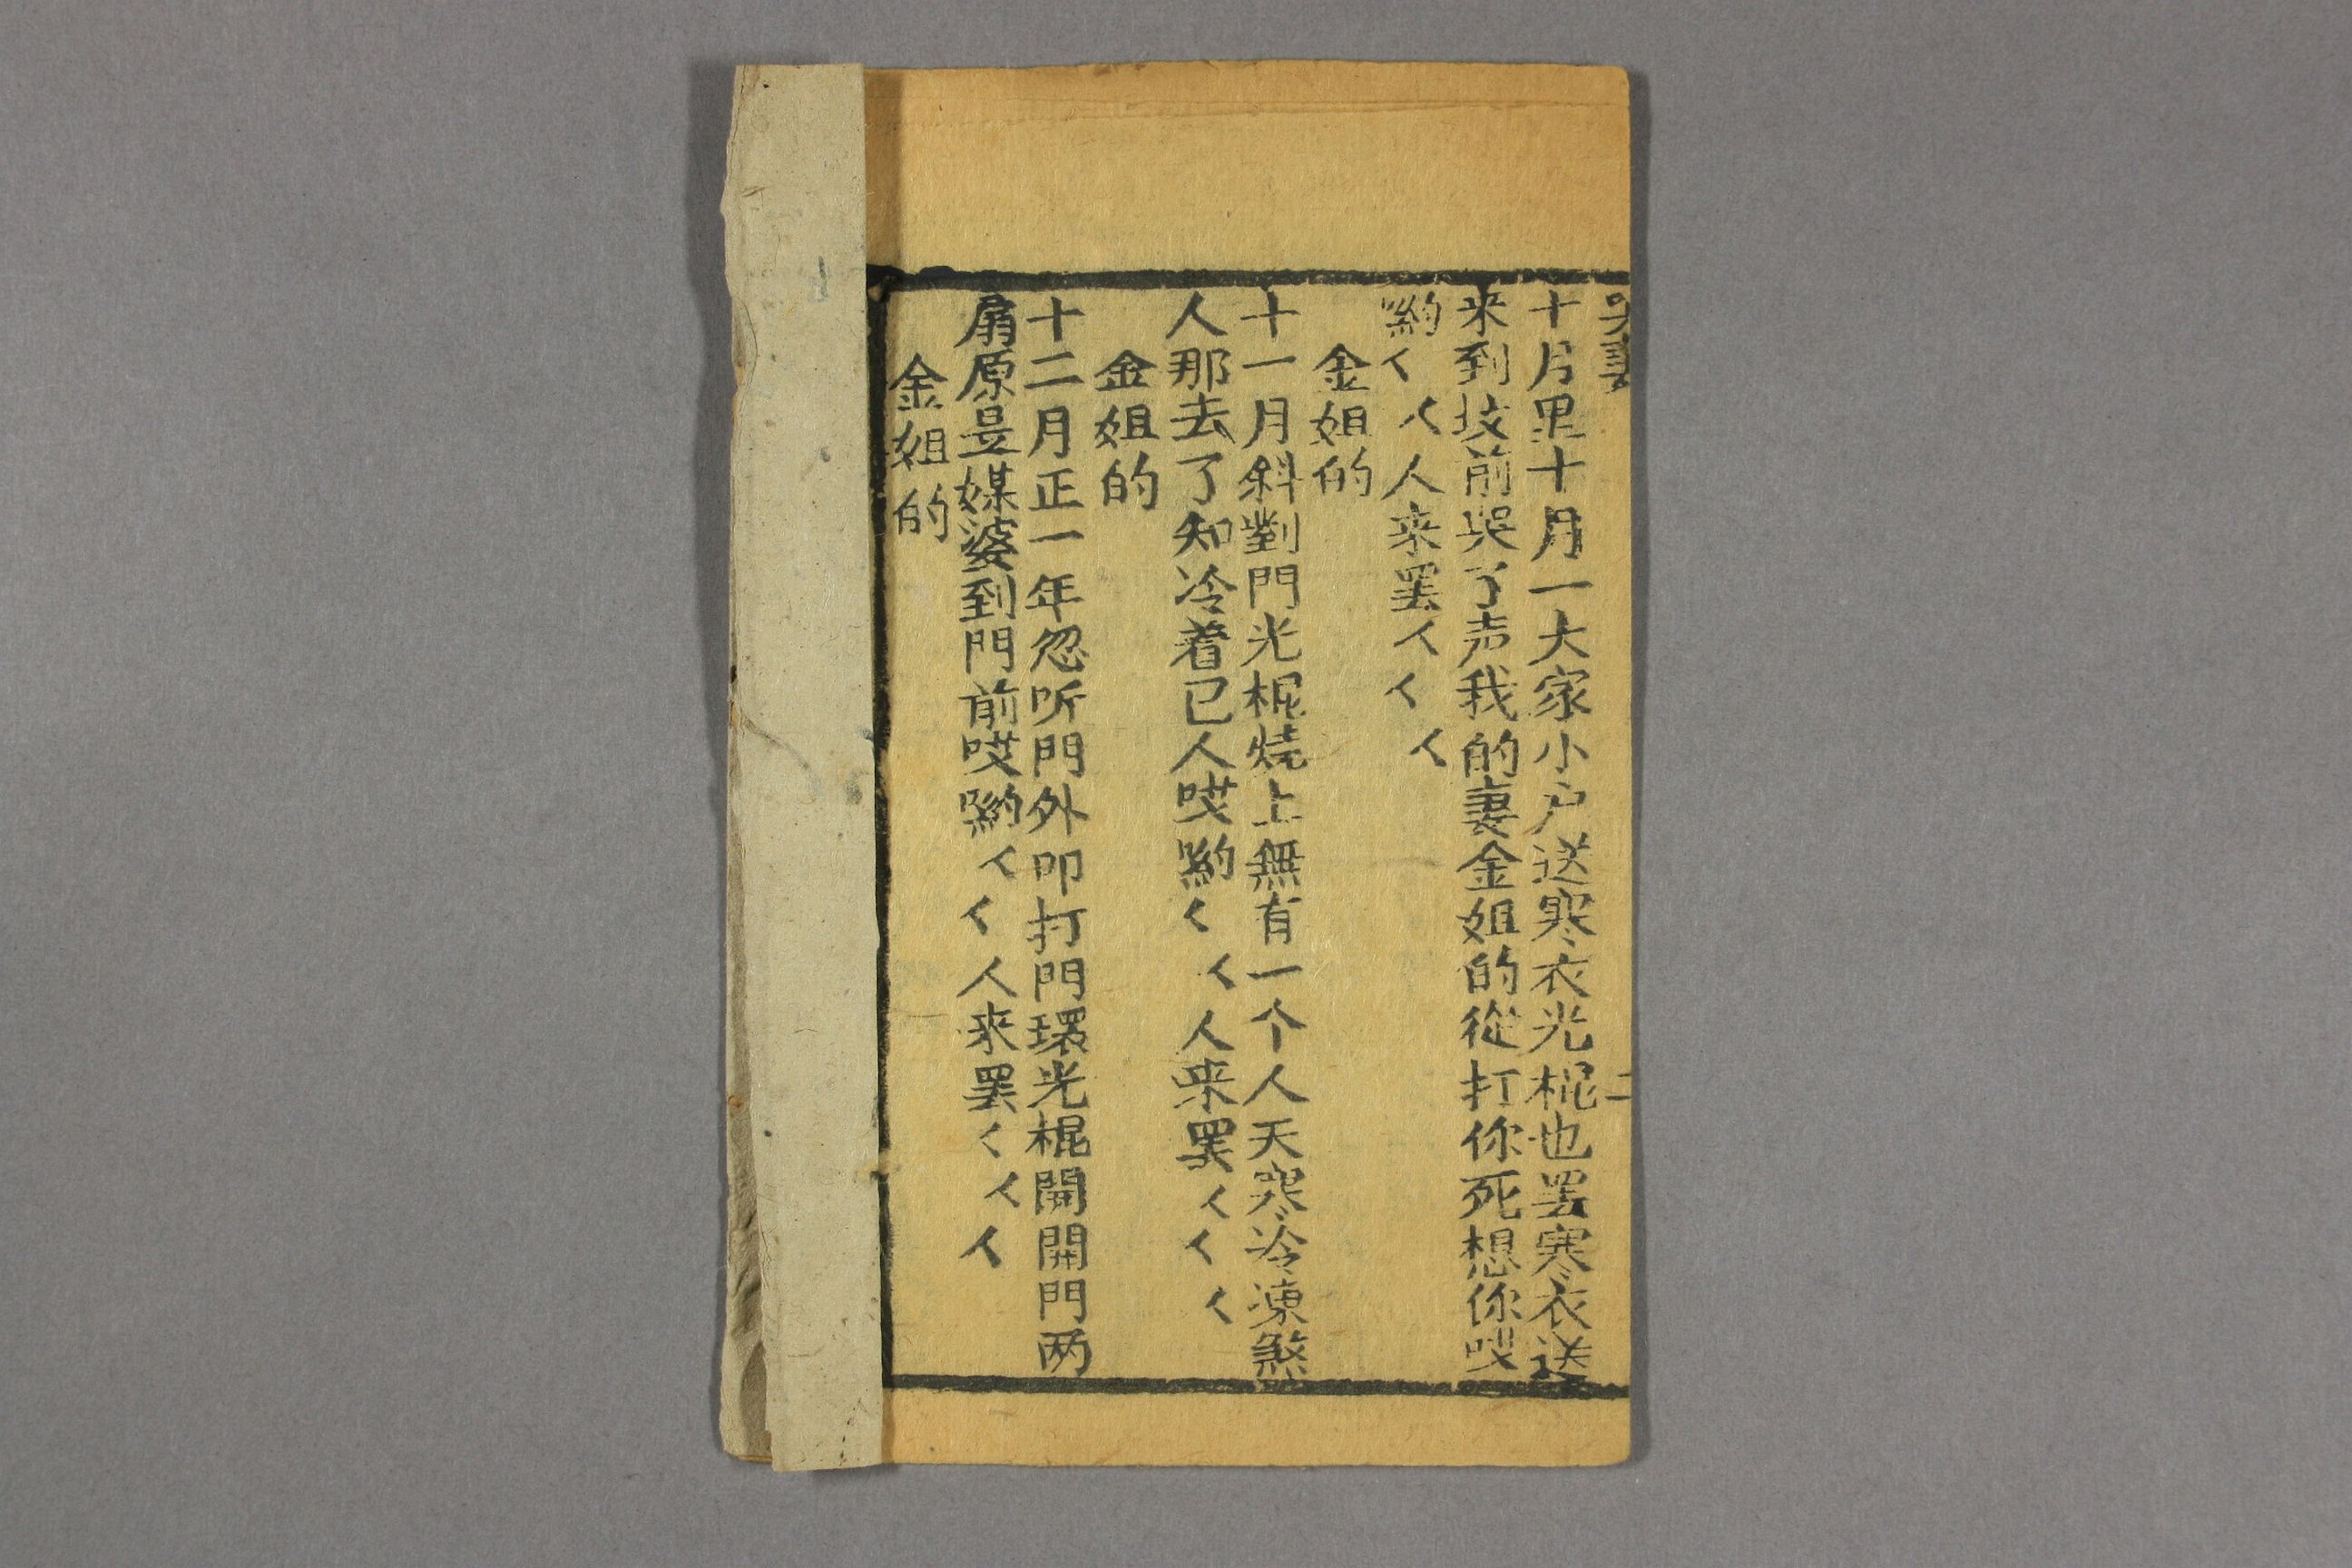 哭妻 二
十月里十月一大家小户送寒衣光棍也罢寒衣送
来到坟前哭了声我的妻金姐的從打你死想你哎
喲〱〱人来罢〱〱〱
金姐的
十一月斜對門光棍焼上無有一个人天寒冷凍煞
人那去了知冷着已人哎喲〱〱人来罢〱〱〱
金姐的
十二月正一年忽听門外叩打門環光棍開開門两
扇原是媒婆到門前哎喲〱〱人来罢〱〱〱
金姐的